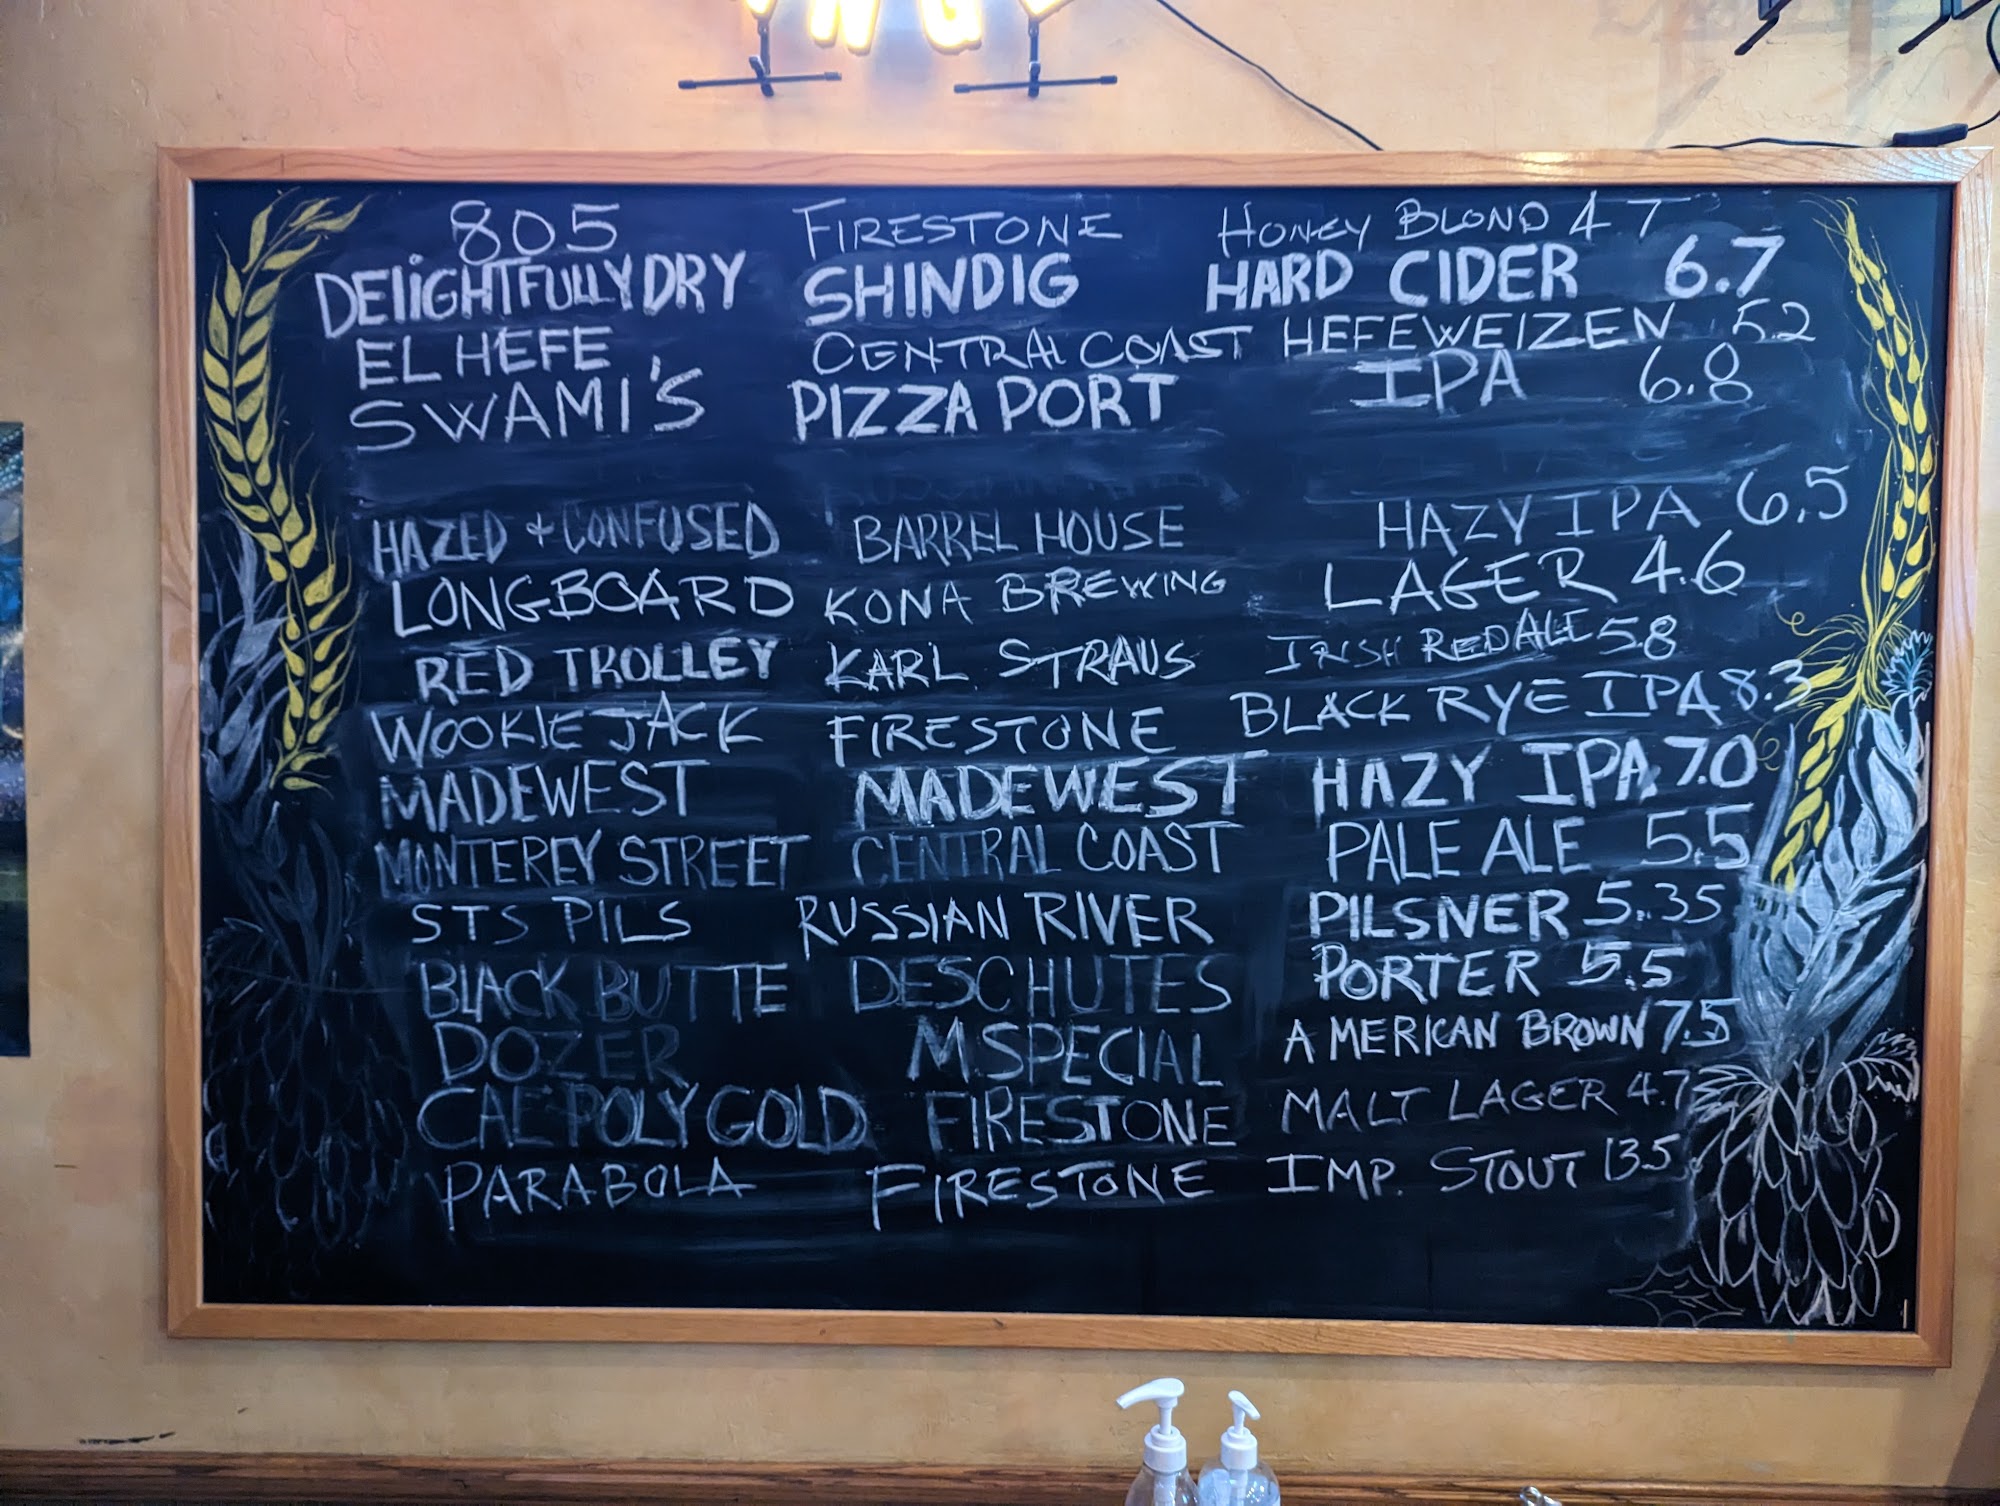 805 FIRESTONE HONEY BLOND 4 7
DELIGHTFULLY DRY SHINDIG HARD CIDER 6.7
EL HEFE CENTRAL COAST HEFEWEIZEN 5.2
SWAMI'S PIZZA PORT IPA 6.8
HAZED + CONFUSED BARREL HOUSE HAZY IPA 6.5
LONGBOARD KONA BREWING LAGER 4.6
RED TROLLEY KARL STRAUS IRISH RED ALE 5.8
WOOKIE JACK FIRESTONE BLACK RYE IPA 8.3
MADEWEST MADEWEST HAZY IPA 7.0
MONTEREY STREET CENTRAL COAST PALE ALE 5.5
STS PILS RUSSIAN RIVER PILSNER 5.35
BLACK BUTTE DESCHUTES PORTER 5.5
DOZER M.SPECIAL AMERICAN BROWN 7.5
CAL POLY GOLD FIRESTONE MALT LAGER 4.7
PARABOLA FIRESTONE IMP. STOUT 13.5